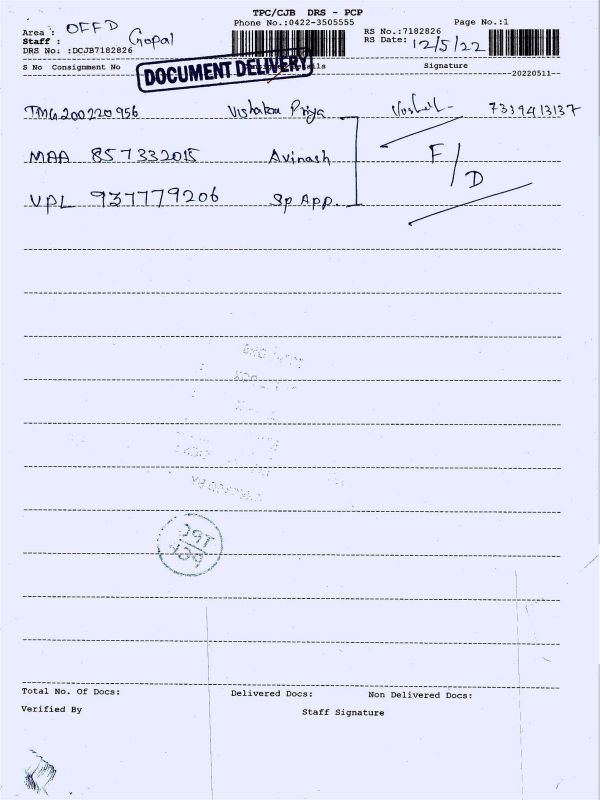 TPC/CJB DRS - PCP
Phone No.:0422-3505555
Page No.:1
Area : OFFD
Staff : Gopal
DRS No: :DCJB7182826
RS No.:7182826
RS Date: 12/5/22
DOCUMENT DELIVERY
S No Consignment No Signature
--20220511--
TMG200220956 Priya 7339413137
MAA 857332015 Avinash F/D
VPL 937779206 Sp App.
TPC
Total No. Of Docs: Delivered Docs: Non Delivered Docs:
Verified By Staff Signature